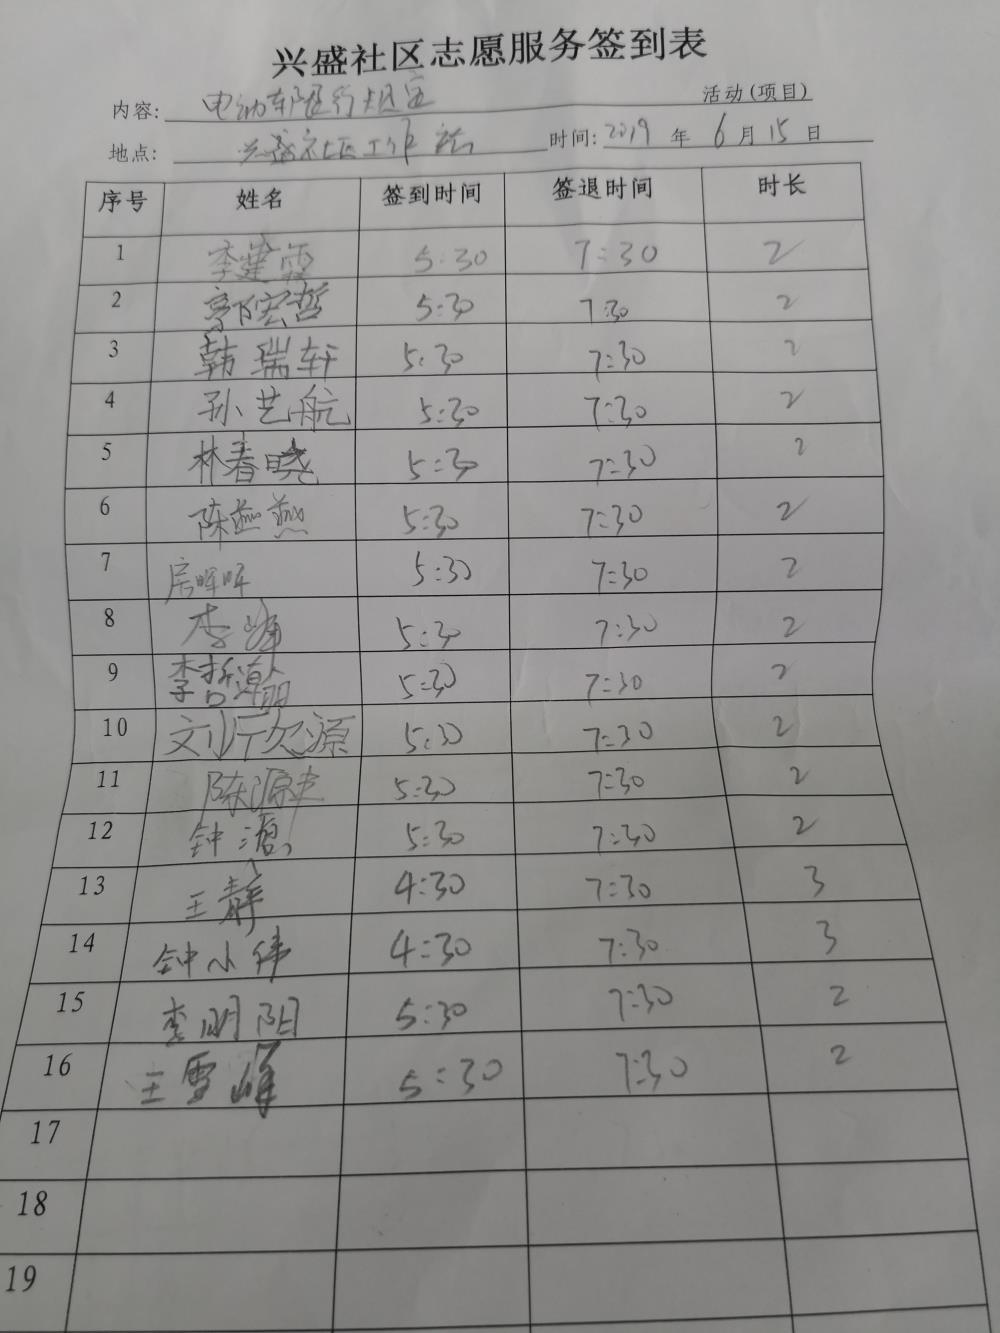 兴盛社区志愿服务签到表
内容: 电动车限行规定 活动(项目)
地点: 兴盛社区工作站 时间: 2019 年 6 月 15 日
序号 姓名 签到时间 签退时间 时长
1 李建霞 5:30 7:30 2
2 郭宏哲 5:30 7:30 2
3 韩瑞轩 5:30 7:30 2
4 孙艺航 5:30 7:30 2
5 林春晓 5:30 7:30 2
6 陈燕燕 5:30 7:30 2
7 房晖晖 5:30 7:30 2
8 李 5:30 7:30 2
9 李哲瀚 5:30 7:30 2
10 刘欣源 5:30 7:30 2
11 陈源 5:30 7:30 2
12 钟 5:30 7:30 2
13 王静 4:30 7:30 3
14 钟小伟 4:30 7:30 3
15 李明阳 5:30 7:30 2
16 王雪峰 5:30 7:30 2
17
18
19